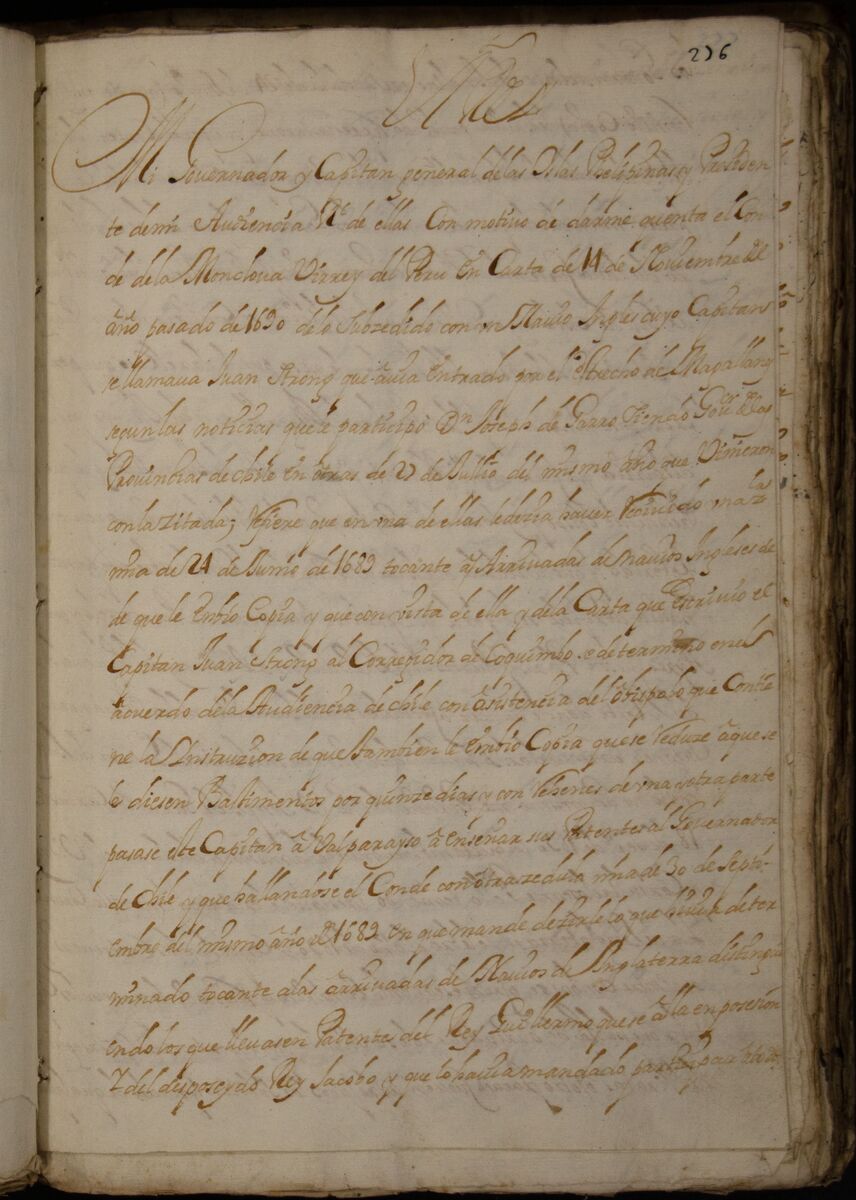 276
El Rey
Mi Governador y Capitan general de las Islas Phelipinas y Presiden
te de mi Audiencia Rl. de ellas Con motivo de darme quenta el Con
de dela Monclova Virrey del Peru en Carta de 14 de Noviembre del
año pasado de 1690 delo Subzedido con vn Nauio Ingles cuyo Capitan
se llamaua Juan Strong que auia entrado por el estrecho de Magallanes
segun las noticias que le participó Dn. Joseph de Garro siendo Gour. de las
Prouincias de Chile en otras de 27 de Jullio del mismo año que Vinieron
con la zitada; refiere que en vna de ellas le dezia hauer reciuido vna zla
mia de 24 de Junio de 1689 tocante a Arriuadas de nauios Ingleses de
de que le embio Copia y que con vista de ella y de la Carta que escriuio el
Capitan Juan Strong al Corregidor de Coquimbo se determino en el
acuerdo dela Audiencia de Chile con asistencia del obispo lo que Contie
ne la Instruzion de que tambien le embio Copia que se reduze a que se
le diesen Bastimentos por quinze dias y con rehenes de vna y otra parte
pasase este Capitan a Valparayso a enseñar sus Patentes al Governador
de Chile y que hallandose el Conde con otra zedula mia de 30 de Septi-
embre del mismo año de 1689 en que mande dezirle lo que hauia deter
minado tocante a las arriuadas de Nauios de Inglaterra distingui
endo los que lleuasen Patente del Rey Guillermo que se alla en posesion
y del desposeydo Rey Jacobo y que lo hauia mandado participar